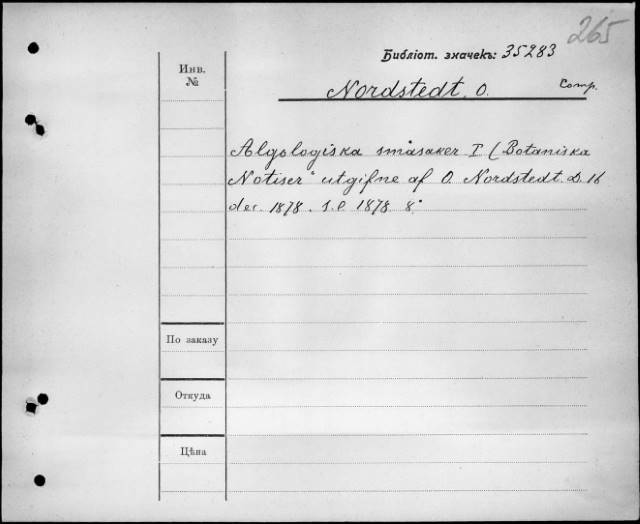 265
Библіот. значекъ: 35283
Инв.
№
Nordstedt. O.
Comp.
Algologiska småsaker I ( Botaniska
Notiser" utgifne af O. Nordstedt. D. 16
dec. 1878. s.l. 1878. 8°
По заказу
Откуда
Цѣна